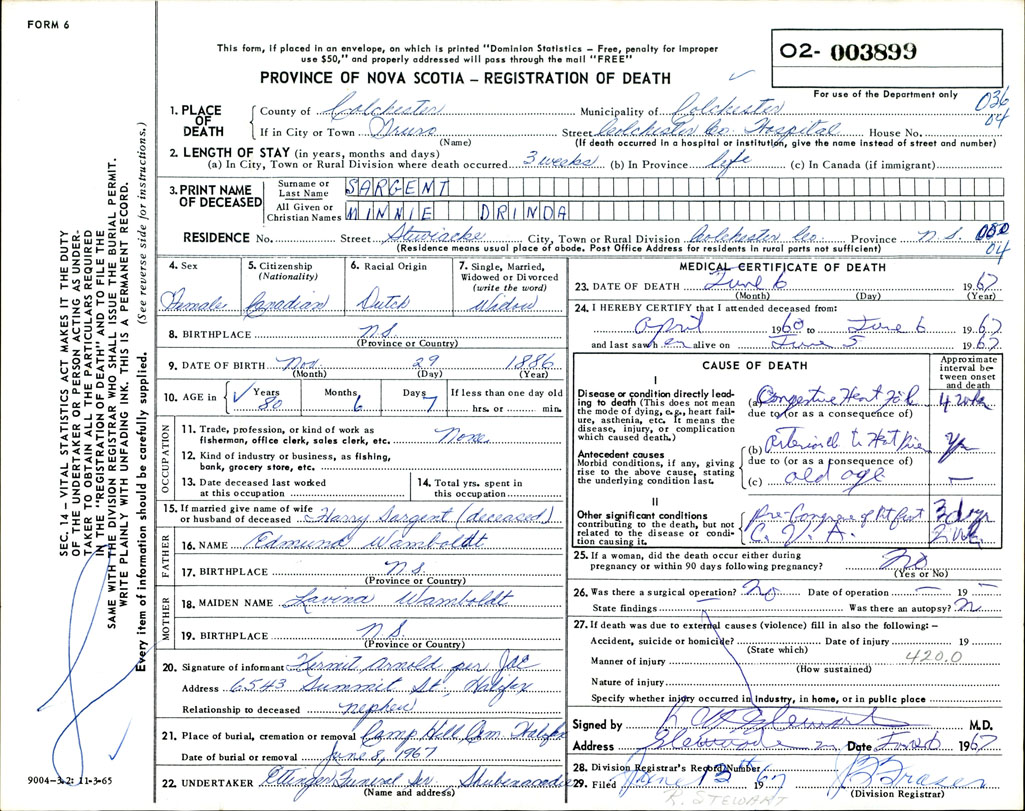 FORM 6
This form, if placed in an envelope, on which is printed "Dominion Statistics – Free, penalty for improper
use $50," and properly addressed will pass through the mail "FREE"
PROVINCE OF NOVA SCOTIA – REGISTRATION OF DEATH
02- 003899
For use of the Department only
036
04
1. PLACE OF DEATH
County of Colchester Municipality of Colchester
If in City or Town Truro Street Colchester Co. Hospital House No.
(Name) (If death occurred in a hospital or institution, give the name instead of street and number)
2. LENGTH OF STAY (in years, months and days)
(a) In City, Town or Rural Division where death occurred 3 weeks (b) In Province life (c) In Canada (if immigrant)
3. PRINT NAME OF DECEASED
Surname or Last Name SARGENT
All Given or Christian Names MINNIE DRINDA
RESIDENCE No. Street Stewiacke City, Town or Rural Division Colchester Co. Province N.S. 050
04
(Residence means usual place of abode. Post Office Address for residents in rural parts not sufficient)
4. Sex Female
5. Citizenship (Nationality) Canadian
6. Racial Origin Dutch
7. Single, Married, Widowed or Divorced (write the word) Widow
8. BIRTHPLACE N.S.
(Province or Country)
9. DATE OF BIRTH Nov. 29 1886
(Month) (Day) (Year)
10. AGE in Years 80 Months 6 Days 7 If less than one day old
hrs. or min.
OCCUPATION
11. Trade, profession, or kind of work as
fisherman, office clerk, sales clerk, etc. None
12. Kind of industry or business, as fishing,
bank, grocery store, etc.
13. Date deceased last worked
at this occupation
14. Total yrs. spent in
this occupation
15. If married give name of wife
or husband of deceased Harry Sargent (deceased)
FATHER
16. NAME Edmund Wamboldt
17. BIRTHPLACE N.S.
(Province or Country)
MOTHER
18. MAIDEN NAME Lavina Wamboldt
19. BIRTHPLACE N.S.
(Province or Country)
20. Signature of informant Kermit Arnold per
Address 6543 Summit St., Halifax
Relationship to deceased nephew
21. Place of burial, cremation or removal Camp Hill Cem Halifax
Date of burial or removal June 8, 1967
22. UNDERTAKER Ettinger Funeral Ser. Shubenacadie
(Name and address)
MEDICAL CERTIFICATE OF DEATH
23. DATE OF DEATH June 6 1967
(Month) (Day) (Year)
24. I HEREBY CERTIFY that I attended deceased from:
April 1960 to June 6 1967
and last saw h er alive on June 5 1967
CAUSE OF DEATH
Approximate interval between onset and death
I
Disease or condition directly leading to death (This does not mean the mode of dying, e.g., heart failure, asthenia, etc. It means the disease, injury, or complication which caused death.)
(a) Congestive Heart Fail 4 wks
due to (or as a consequence of)
Antecedent causes
Morbid conditions, if any, giving rise to the above cause, stating the underlying condition last.
(b)
due to (or as a consequence of)
(c) old age –
II
Other significant conditions
contributing to the death, but not related to the disease or condition causing it.
3 days
C. V. A. 2 wks
25. If a woman, did the death occur either during
pregnancy or within 90 days following pregnancy? No
(Yes or No)
26. Was there a surgical operation? No Date of operation – 19 –
State findings – Was there an autopsy? N
27. If death was due to external causes (violence) fill in also the following: –
Accident, suicide or homicide? Date of injury 19
(State which)
Manner of injury 420.0
(How sustained)
Nature of injury
Specify whether injury occurred in Industry, in home, or in public place
Signed by M.D.
Address Date 1967
28. Division Registrar's Record Number
29. Filed June 13th 1967 Fraser
(Division Registrar)
R. STEWART
SEC. 14 – VITAL STATISTICS ACT MAKES IT THE DUTY
OF THE UNDERTAKER OR PERSON ACTING AS UNDER-
TAKER TO OBTAIN ALL THE PARTICULARS REQUIRED
IN THE "REGISTRATION OF DEATH" AND TO FILE THE
SAME WITH THE DIVISION REGISTRAR WHO SHALL ISSUE THE BURIAL PERMIT.
WRITE PLAINLY WITH UNFADING INK. THIS IS A PERMANENT RECORD.
Every item of information should be carefully supplied. (See reverse side for instructions.)
9004-3.2: 11-3-65